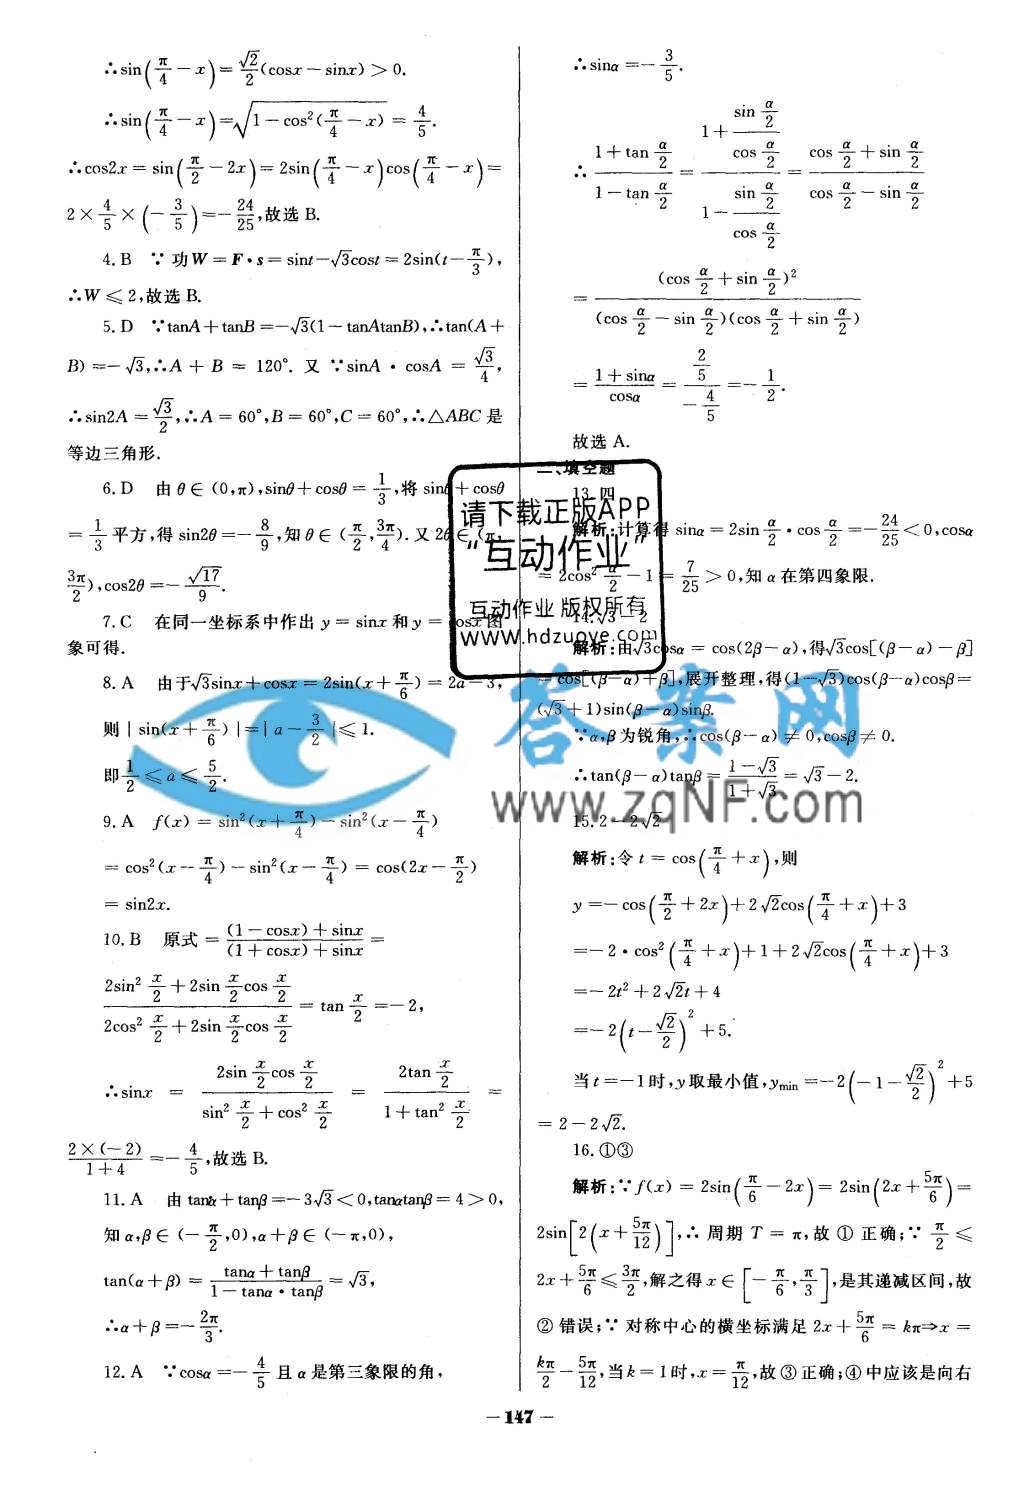 ∴sin(π/4－x)＝√2/2(cosx－sinx)＞0.
∴sin(π/4－x)＝√(1－cos²(π/4－x))＝4/5.
∴cos2x＝sin(π/2－2x)＝2sin(π/4－x)cos(π/4－x)＝
2×4/5×(－3/5)＝－24/25,故选 B.
4. B ∵功W＝F·s＝sint－√3cost＝2sin(t－π/3),
∴W≤2,故选 B.
5. D ∵tanA＋tanB＝－√3(1－tanAtanB),∴tan(A＋
B)＝－√3,∴A＋B＝120°. 又∵sinA·cosA＝√3/4,
∴sin2A＝√3/2,∴A＝60°,B＝60°,C＝60°,∴△ABC 是
等边三角形.
6. D 由θ∈(0,π),sinθ＋cosθ＝1/3,将 sinθ＋cosθ
＝1/3平方,得 sin2θ＝－8/9,知θ∈(π/2,3π/4). 又 2θ∈(π,
3π/2),cos2θ＝－√17/9.
7. C 在同一坐标系中作出 y＝sinx 和 y＝cosx图
象可得.
8. A 由于√3sinx＋cosx＝2sin(x＋π/6)＝2a－3,
则|sin(x＋π/6)|＝|a－3/2|≤1.
即1/2≤a≤5/2.
9. A f(x)＝sin²(x＋π/4)－sin²(x－π/4)
＝cos²(x－π/4)－sin²(x－π/4)＝cos(2x－π/2)
＝sin2x.
10. B 原式＝((1－cosx)＋sinx)/((1＋cosx)＋sinx)＝
(2sin²x/2＋2sinx/2cosx/2)/(2cos²x/2＋2sinx/2cosx/2)＝tanx/2＝－2,
∴sinx＝(2sinx/2cosx/2)/(sin²x/2＋cos²x/2)＝(2tanx/2)/(1＋tan²x/2)＝
(2×(－2))/(1＋4)＝－4/5,故选 B.
11. A 由 tanα＋tanβ＝－3√3＜0,tanαtanβ＝4＞0,
知α,β∈(－π/2,0),α＋β∈(－π,0),
tan(α＋β)＝(tanα＋tanβ)/(1－tanα·tanβ)＝√3,
∴α＋β＝－2π/3.
12. A ∵cosα＝－4/5且α是第三象限的角,
∴sinα＝－3/5.
∴(1＋tanα/2)/(1－tanα/2)＝(1＋(sinα/2)/(cosα/2))/(1－(sinα/2)/(cosα/2))＝(cosα/2＋sinα/2)/(cosα/2－sinα/2)
＝(cosα/2＋sinα/2)²/((cosα/2－sinα/2)(cosα/2＋sinα/2))
＝(1＋sinα)/cosα＝(2/5)/(－4/5)＝－1/2.
故选 A.
二、填空题
13. 四
解析:计算得 sinα＝2sinα/2·cosα/2＝－24/25＜0,cosα
＝2cos²α/2－1＝7/25＞0,知α在第四象限.
14. √3－2
解析:由√3cosα＝cos(2β－α),得√3cos[(β－α)－β]
＝cos[(β－α)＋β],展开整理,得(1－√3)cos(β－α)cosβ＝
(√3＋1)sin(β－α)sinβ.
∵α,β为锐角,∴cos(β－α)≠0,cosβ≠0.
∴tan(β－α)tanβ＝(1－√3)/(1＋√3)＝√3－2.
15. 2－2√2
解析:令 t＝cos(π/4＋x),则
y＝－cos(π/2＋2x)＋2√2cos(π/4＋x)＋3
＝－2·cos²(π/4＋x)＋1＋2√2cos(π/4＋x)＋3
＝－2t²＋2√2t＋4
＝－2(t－√2/2)²＋5.
当 t＝－1时,y取最小值,ymin＝－2(－1－√2/2)²＋5
＝2－2√2.
16. ①③
解析:∵f(x)＝2sin(π/6－2x)＝2sin(2x＋5π/6)＝
2sin[2(x＋5π/12)],∴周期 T＝π,故①正确;∵π/2≤
2x＋5π/6≤3π/2,解之得 x∈[－π/6,π/3],是其递减区间,故
②错误;∵对称中心的横坐标满足 2x＋5π/6＝kπ⇒x＝
kπ/2－5π/12,当 k＝1时,x＝π/12,故③正确;④中应该是向右
请下载正版APP
“互动作业”
互动作业 版权所有
www.hdzuoye.com
答案网
www.zqNF.com
－147－